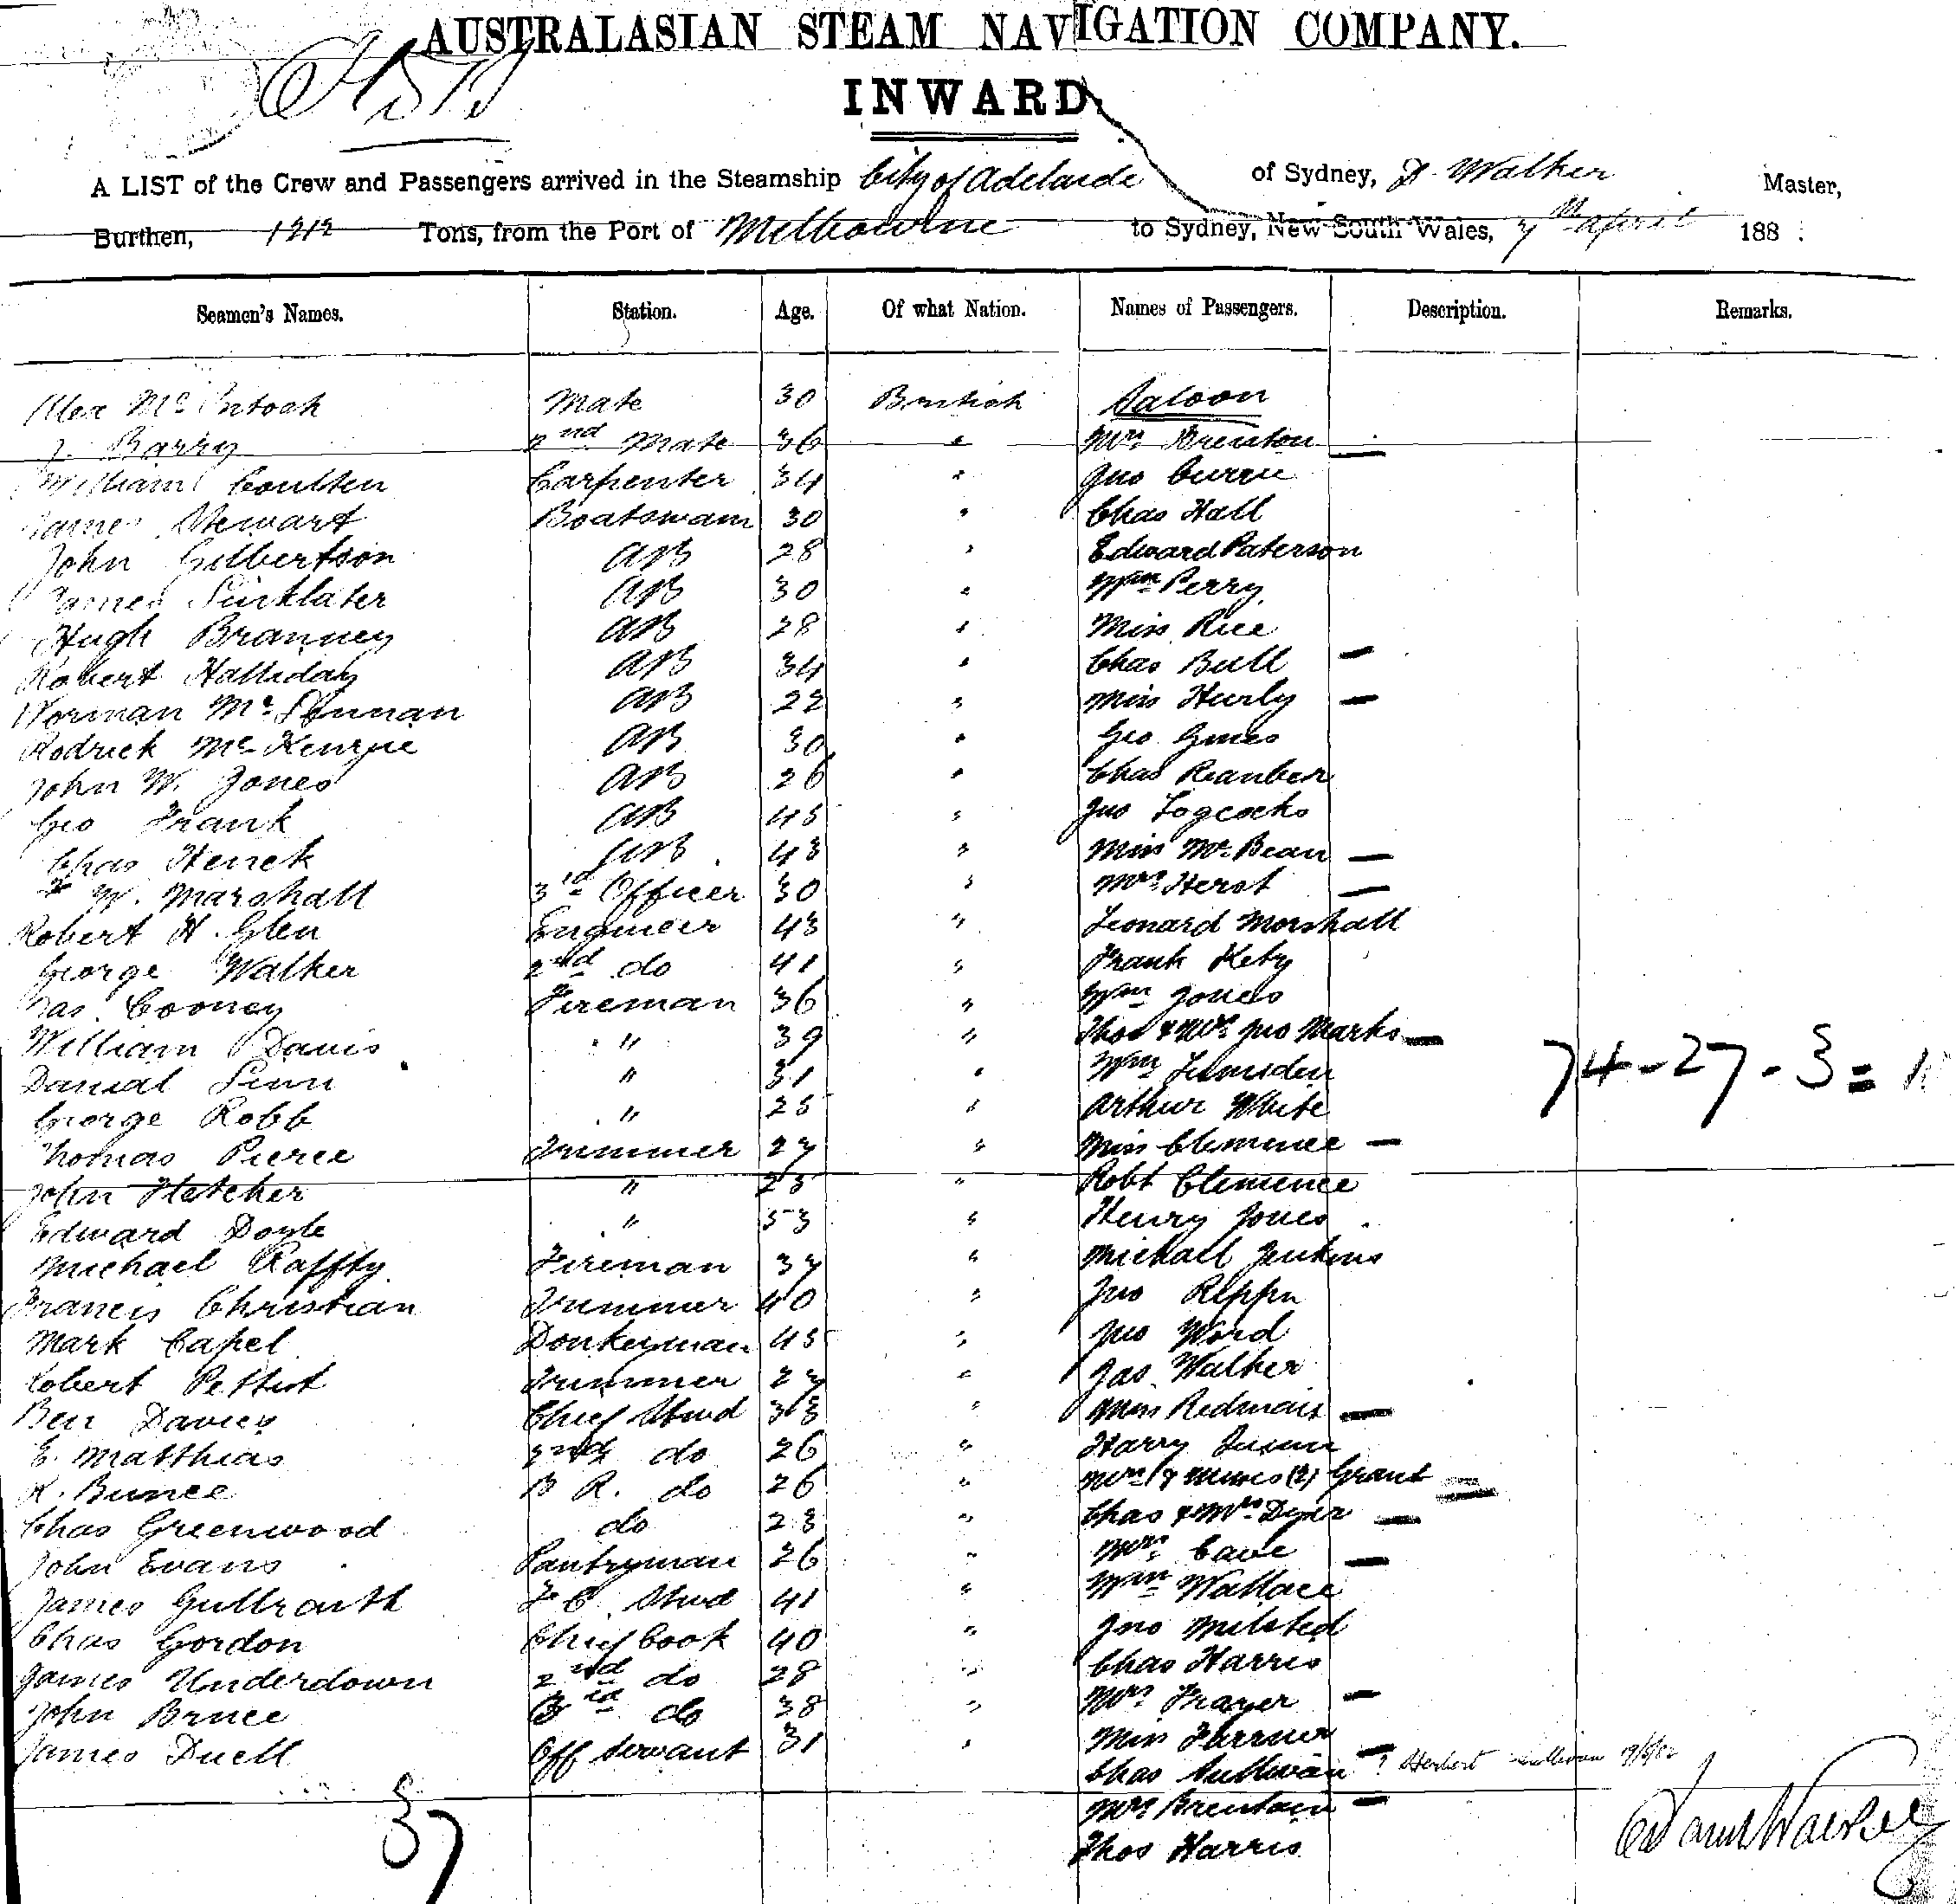 AUSTRALASIAN STEAM NAVIGATION COMPANY.
INWARD
A LIST of the Crew and Passengers arrived in the Steamship City of Adelaide of Sydney, Walker Master,
Burthen, 1212 Tons, from the Port of Melbourne to Sydney, New South Wales, 7th April 188
Seamen's Names. Station. Age. Of what Nation. Names of Passengers. Description. Remarks.
Alex McIntosh Mate 30 British Saloon
J. Barry 2nd Mate 36 " Mrs Brenton
William Coulten Carpenter 34 " Jno Currie
James Stewart Boatswain 30 " Chas Hall
John Gilbertson AB 28 " Edward Paterson
James Sinklater AB 30 " Wm Perry
Hugh Branney AB 28 " Miss Rice
Robert Halliday AB 34 " Chas Bull —
Norman McLennan AB 22 " Miss Hurly —
Rodrick McKenzie AB 30 " Geo
John W. Jones AB 26 " Chas
Geo Frank AB 45 " Jno Togcocks
Chas Henck AB 43 " Miss McBean —
W. Marshall 3rd Officer 30 " Mrs Herst —
Robert H. Glen Engineer 43 " Leonard Morshall
George Walker 2nd do 41 " Frank Kety
Jas. Cooney Fireman 36 " Wm Jones
William Davis " 39 " Thos & Mrs Jno Marks —
Danial Linn " 31 " Wm Lumsden 74-27-3=
George Robb " 25 " Arthur White
Thomas Pierce Trimmer 27 " Miss Clemence —
John Fletcher " 25 " Robt Clemence
Edward Doyle " 53 " Henry Jones
Michael Raffty Fireman 37 " Michall Jenkins
Francis Christian Trimmer 40 " Jno
Mark Capel Donkeyman 45 " Jno Word
Robert Pettirt Trimmer 27 " Jas. Walker
Ben Davies Chief Stwd 33 " Miss —
E. Matthias 2nd do 26 " Harry
K. Bunce B R. do 26 " Mrs & Misses (2) Grant
Chas Greenwood do 23 " Chas & Mrs Dyer —
John Evans Pantryman 26 " Mrs Cave —
James Gullraith F C. Stwd 41 " Wm Wallace
Chas Gordon Chief Cook 40 " Jno Milsted
James Underdown 2nd do 28 " Chas Harris
John Bruce 3rd do 38 " Mrs Frazer —
James Duell Off Servant 31 " Miss
Chas Sullivan — ? Herbert Sullivan
Mrs Brentain —
37 Thos Harris